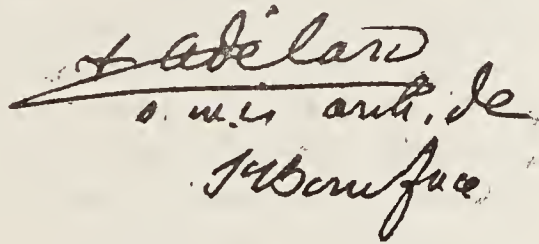 + Adélard
o. m. i. arch. de
St Boniface